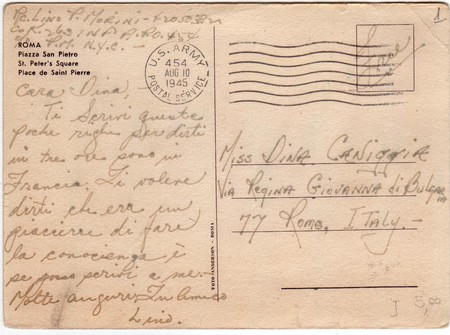 Pfc. Lino P. Morini - 420th Bn
Co. K. 263 INF A.P.O. 454
c/o P.M. N.Y.C. -
ROMA
Piazza San Pietro
St. Peter's Square
Place de Saint Pierre
Cara Dina, -
Ti Scrivi queste
poche righe per dirti
in tre ore sono in
Francia. Ti volene
dirti che err un
piacierre di fare
la conocienza é
se posso scrivi a me-
Molte auguri. Tu amico
Lino.
U.S. ARMY
454
AUG 10
1945
POSTAL SERVICE
Free
FOTO ANDERSON - ROMA
Miss Dina
Via Regina Giovanna di Bulgaria
77 Rome, Italy. -
1
I 5,00